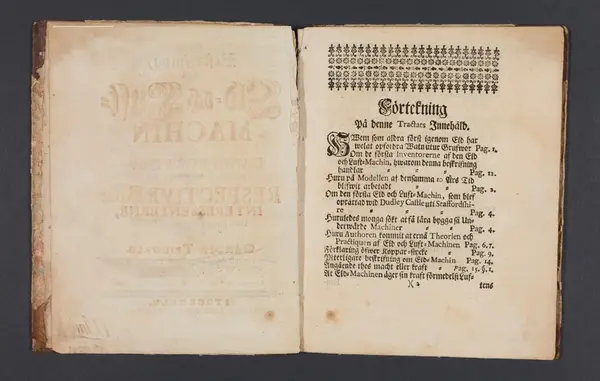 Förtekning
På denne Tractats Innehåld.
HWem som aldra först igenom Eld har
welat opfordra Watn utur Grufwor Pag. 1.
Om de första Inventorerne af den Eld
och Luft-Machin, hwarom denna beskrifning
handlar Pag. 11.
Huru på Modellen af densamma 10 Års Tid
blifwit arbetadt Pag. 2.
Om den första Eld och Luft-Machin, som blef
oprättad wid Dudley Castle uti Staffordshi-
re Pag. 4.
Huruledes monga sökt at få lära bygga så Un-
derwärde Machiner Pag. 4.
Huru Authoren kommit at ernå Theorien och
Practiquen af Eld och Luft-Machinen Pag. 6.7.
Förklaring öfwer Koppar-stycke Pag. 9.
Ytterligare beskrifning om Eld-Machin Pag. 14.
Angående thes macht eller kraft Pag. 15. §. 1.
At Eld-Machinen äger sin kraft förmedelst Luf-
X 2 tens
MACHIN
RESPECTIVE
INTERESSENTERNE
STOCKHOLM,